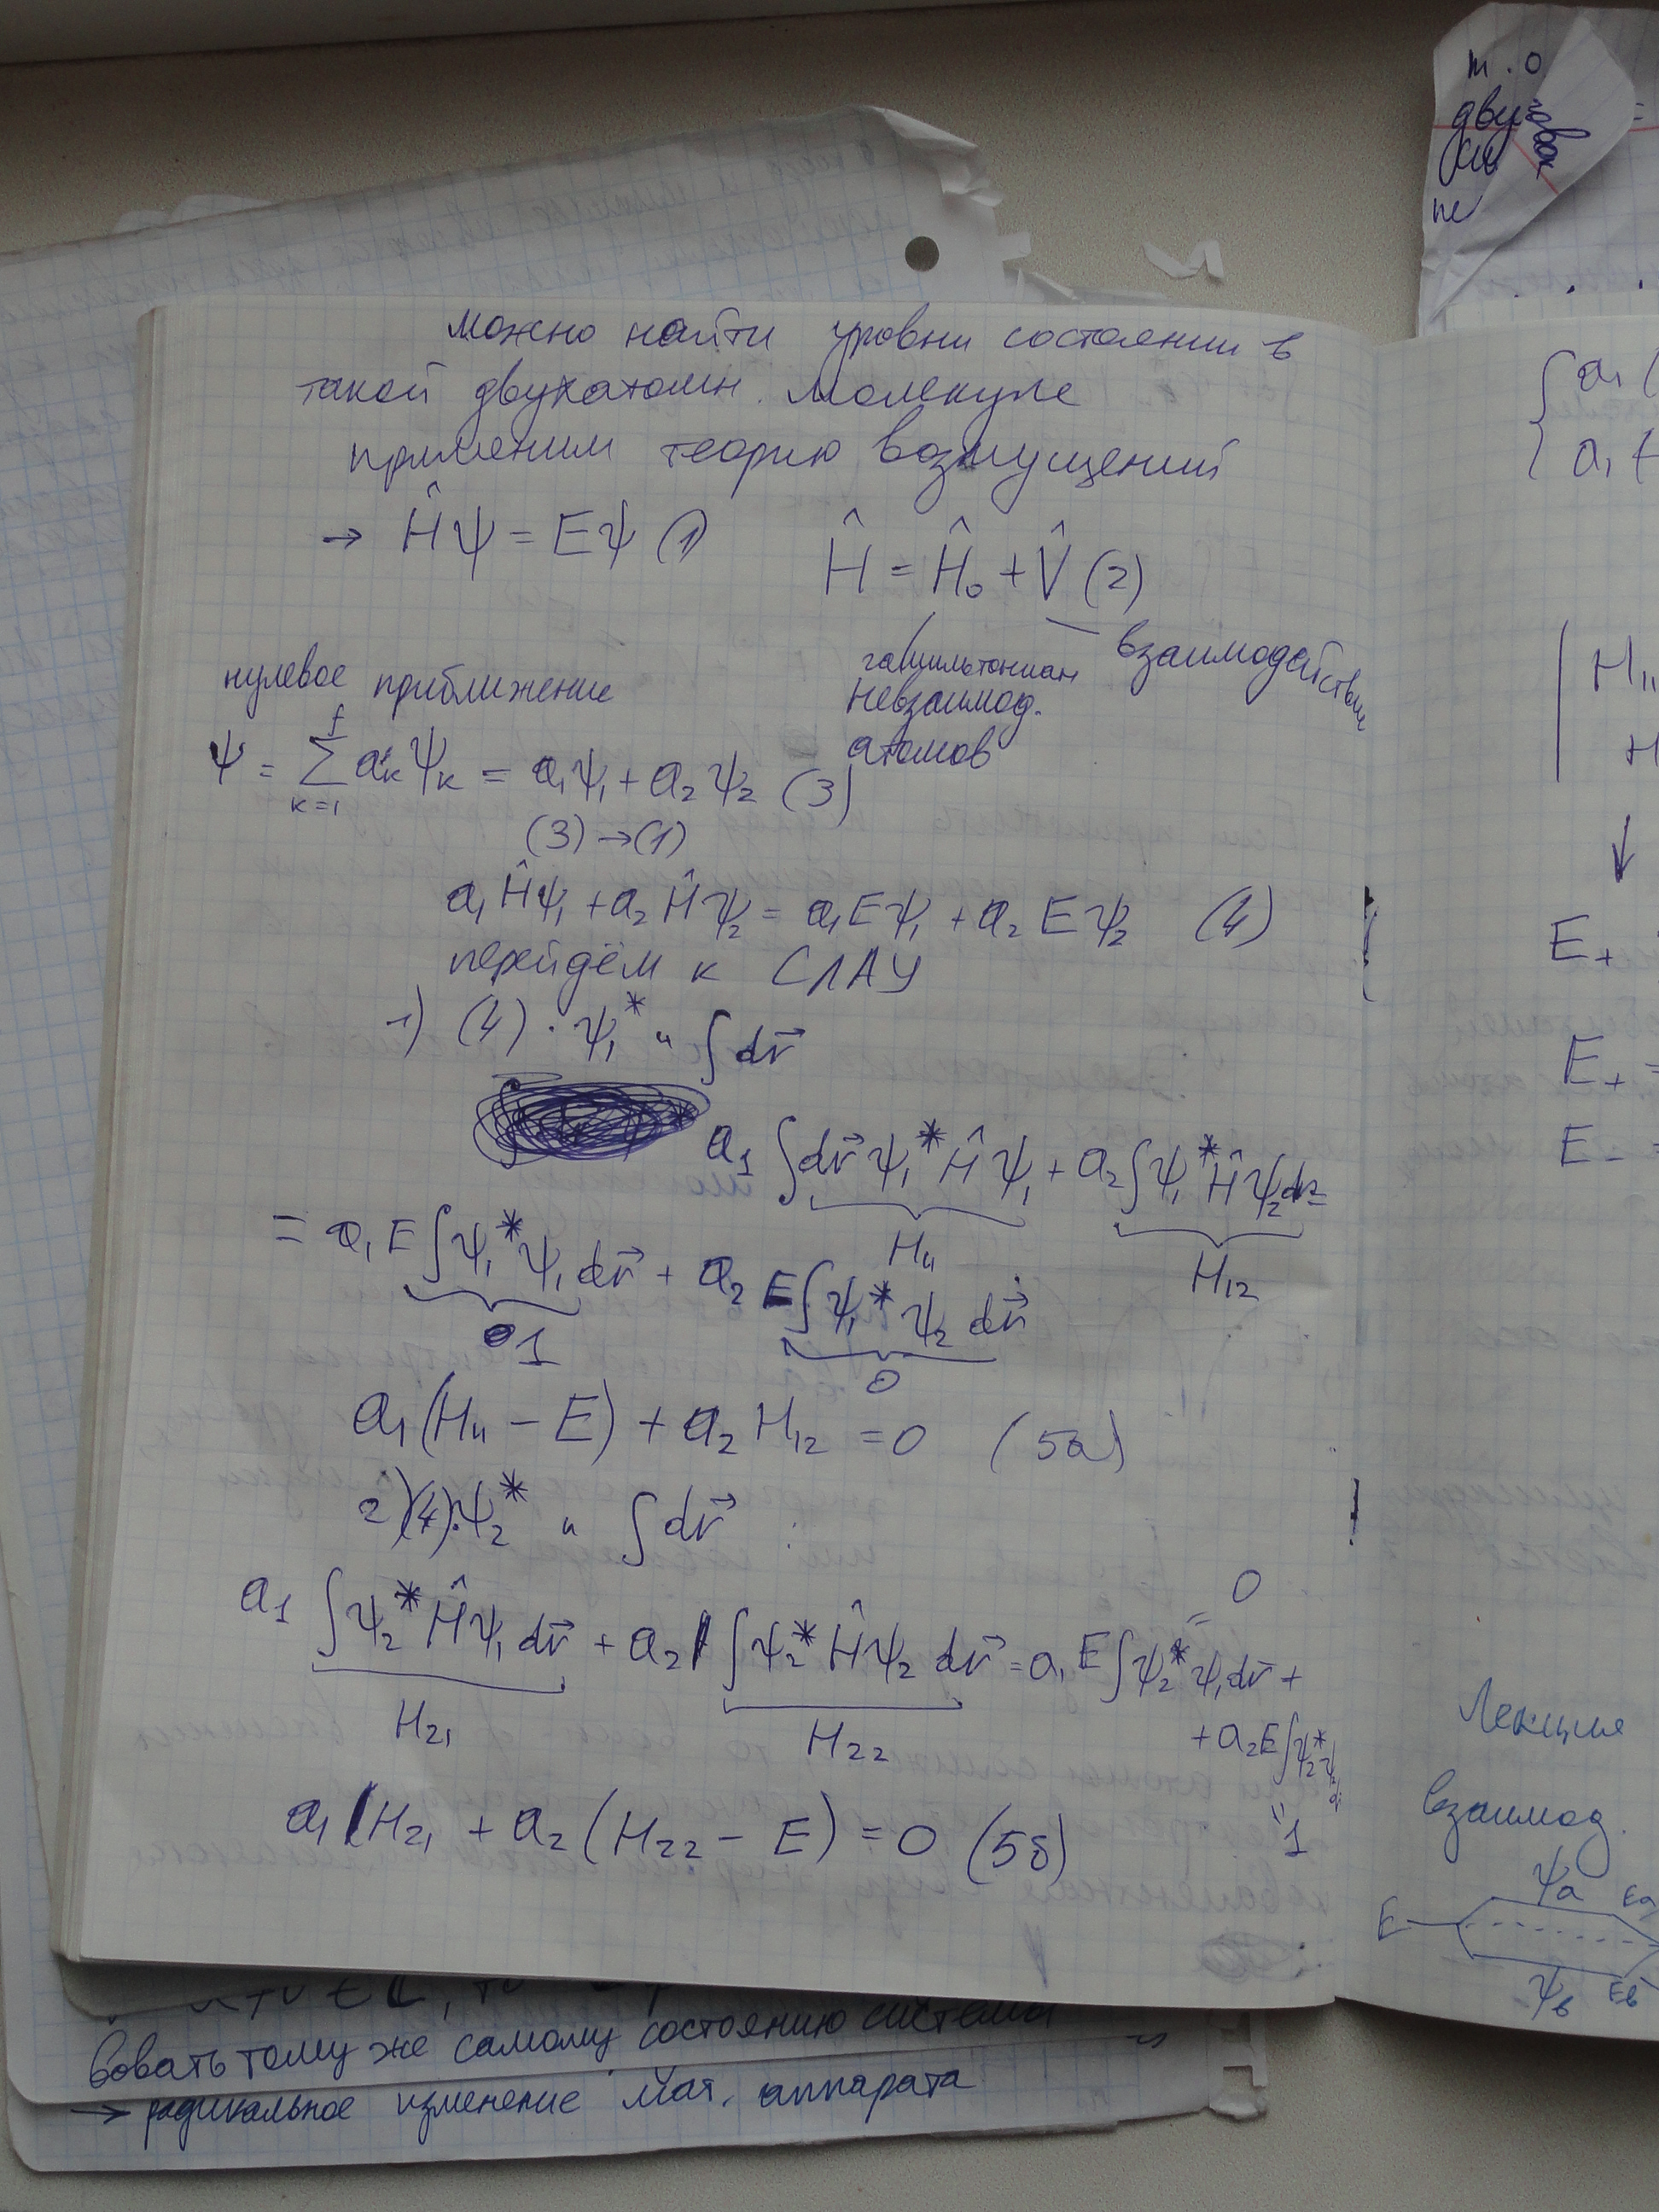 можно найти уровни состоянии в
такой двухатомн. молекуле
применим теорию возмущений
→ Ĥψ = Eψ (1)
Ĥ = Ĥ₀ + V̂ (2)
гамильтониан
невзаимод.
атомов
взаимодействие
нулевое приближение
ψ = ∑ₖ₌₁ᶠ aₖψₖ = a₁ψ₁ + a₂ψ₂ (3)
(3) → (1)
a₁Ĥψ₁ + a₂Ĥψ₂ = a₁Eψ₁ + a₂Eψ₂ (4)
перейдём к СЛАУ
1) (4) · ψ₁* и ∫dr⃗
a₁ ∫dr⃗ ψ₁* Ĥ ψ₁ + a₂ ∫ψ₁* Ĥψ₂ dr⃗ =
H₁₁
H₁₂
= a₁E ∫ψ₁* ψ₁ dr⃗ + a₂ E∫ψ₁* ψ₂ dr⃗
1
0
a₁(H₁₁ − E) + a₂ H₁₂ = 0 (5а)
2) (4)·ψ₂* и ∫dr⃗ :
a₁ ∫ψ₂* Ĥψ₁ dr⃗ + a₂ ∫ψ₂* Ĥψ₂ dr⃗ = a₁ E∫ψ₂* ψ₁ dr⃗ +
= 0
H₂₁
H₂₂
+ a₂E∫ψ₂*ψ₂ dr
" 1
a₁ H₂₁ + a₂ (H₂₂ − E) = 0 (5б)
т. о
дву
{ a₁ (
a₁ H
H₁₁
H
↓
E₊
E₊ =
E₋ =
Лекция
взаимод.
ψa Ea
E
ψв Eв
вовать тому же самому состоянию системы
→ радикальное изменение мат. аппарата